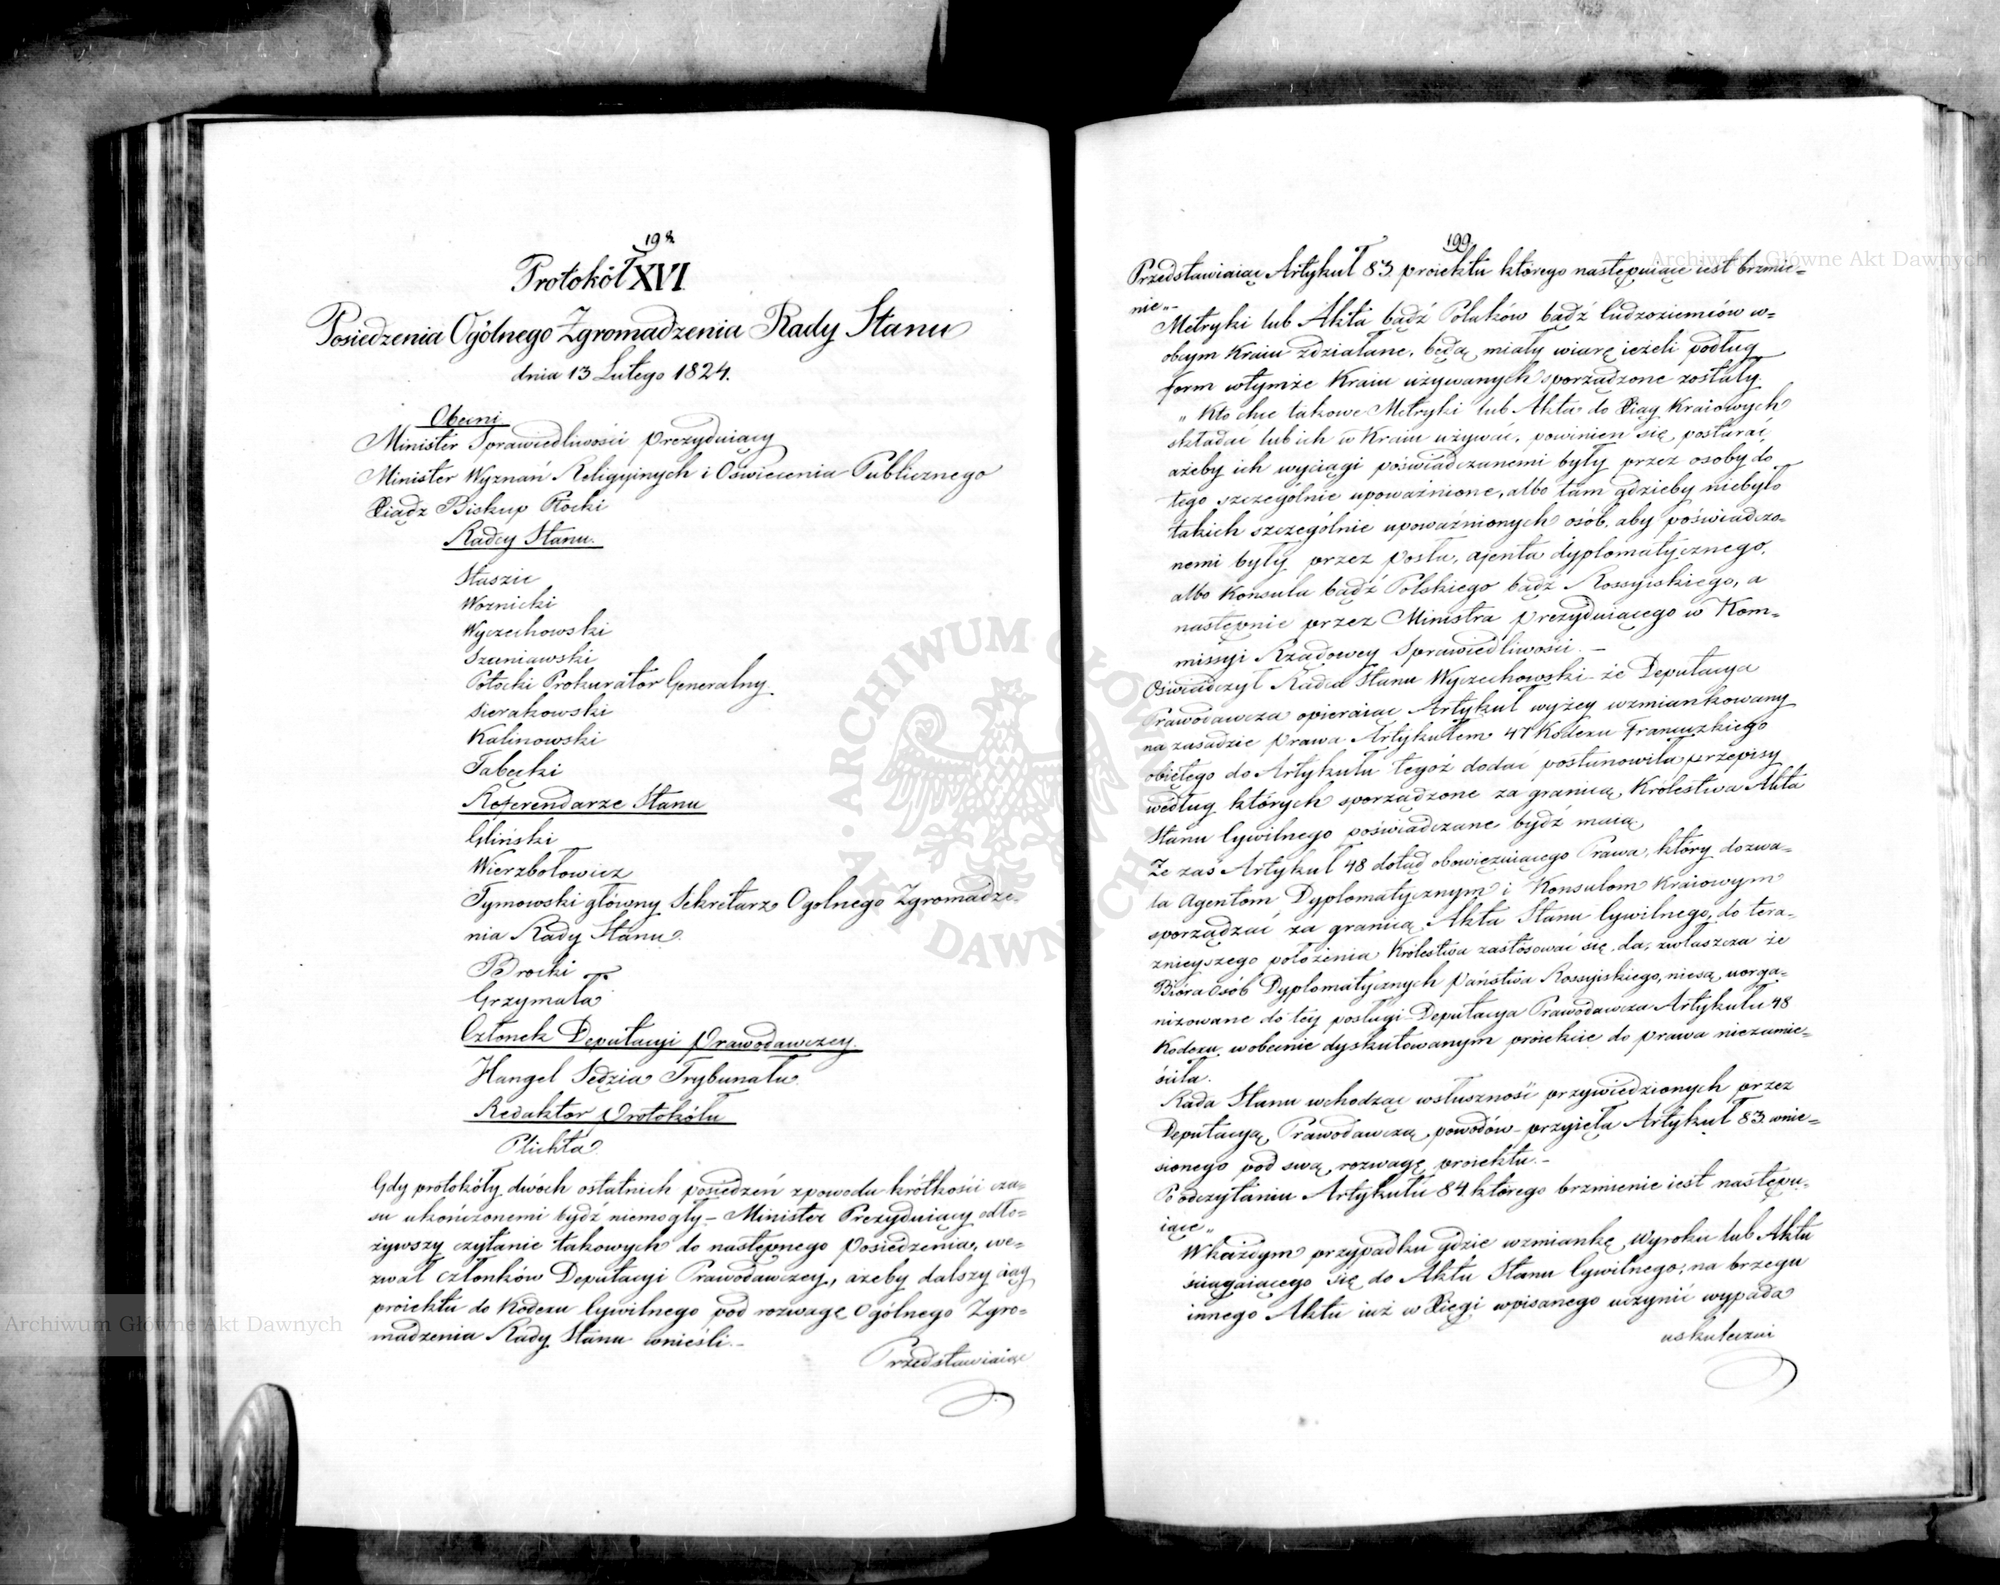 198
Protokół XVI
Posiedzenia Ogólnego Zgromadzenia Rady Stanu
dnia 13 Lutego 1824.
Obecni
Minister Sprawiedliwości Prezyduiący
Minister Wyznań Religyinych i Oświecenia Publicznego
Xiądz Biskup Płocki
Radcy Stanu.
Staszic
Woznicki
Wyczechowski
Szaniawski
Potocki Prokurator Generalny
Sierakowski
Kalinowski
Tabęcki
Referendarze Stanu
Gliński
Wierzbołowicz
Tymowski główny Sekretarz Ogolnego Zgromadze-
nia Rady Stanu.
Brocki
Grzymała
Członek Deputacyi Prawodawczey.
Hangel Sędzia Trybunału
Redaktor Protokółu
Plichta
Gdy protokóły dwóch ostatnich posiedzeń zpowodu krótkości cza-
su ukończonemi bydź niemogły – Minister Prezyduiący odło-
żywszy czytanie takowych do następnego Posiedzenia, we-
zwał członków Deputacyi Prawodawczey, ażeby dalszy ciąg
proiektu do Kodexu Cywilnego pod rozwagę Ogólnego Zgro-
madzenia Rady Stanu wnieśli. –
Przedstawiaiąc
199
Przedstawiaiąc Artykuł 83 proiektu którego następuiące iest brzmie-
nie„
Metryki lub Akta bądź Polaków bądź Cudzoziemców w-
obcym Kraiu zdziałane, będą miały wiarę ieżeli podług
form wtymże Kraiu używanych sporządzone zostały.
„ Kto chce takowe Metryki lub Akta do Xiąg Kraiowych
składać lub ich w Kraiu używać, powinien się postarać
ażeby ich wyciągi poświadczanemi były przez osoby do
tego szczególnie upoważnione, albo tam gdzieby niebyło
takich szczególnie upoważnionych osób, aby poświadczo-
nemi były przez Posła, ajenta dyplomatycznego,
albo Konsula bądź Polskiego bądź Rossyiskiego, a
następnie przez Ministra Prezyduiącego w Kom-
missyi Rządowey Sprawiedliwości. –
Oświadczył Radca Stanu Wyczechowski – że Deputacya
Prawodawcza opieraiąc Artykuł wyżey wzmiankowany
na zasadzie Prawa Artykułem 47 Kodexu Francuzkiego
obiętego do Artykułu tegoż dodać postanowiła przepisy
według których sporządzone za granicą Królestwa Akta
Stanu Cywilnego poświadczane bydź maią.
Ze zaś Artykuł 48 dotąd obowięzuiącego Prawa, który dozwa-
la Agentom Dyplomatycznym i Konsulom Kraiowym
sporządzać za granicą Akta Stanu Cywilnego, do tera-
znieyszego położenia Królestwa zastosować się da, zwłaszcza że
Bióra Osób Dyplomatycznych Państwa Rossyiskiego, niesą uorga-
nizowane do tey posługi – Deputacya Prawodawcza Artykułu 48
Kodexu wobecnie dyskutowanym proiekcie do prawa niezamie-
ściła.
Rada Stanu wchodząc wsłuszność przywiedzionych przez
Deputacyą Prawodawczą, powodów – przyięła Artykuł 83 wnie-
sionego pod swą rozwagę proiektu. –
Po odczytaniu Artykułu 84 którego brzmienie iest następu-
iące„
Wkażdym przypadku gdzie wzmiankę Wyroku lub Aktu
ściągaiącego się do Aktu Stanu Cywilnego, na brzegu
innego Aktu iuż w Xięgi wpisanego uczynić wypada
uskuteczni
Archiwum Główne Akt Dawnych
Archiwum Główne Akt Dawnych
ARCHIWUM GŁÓWNE AKT DAWNYCH